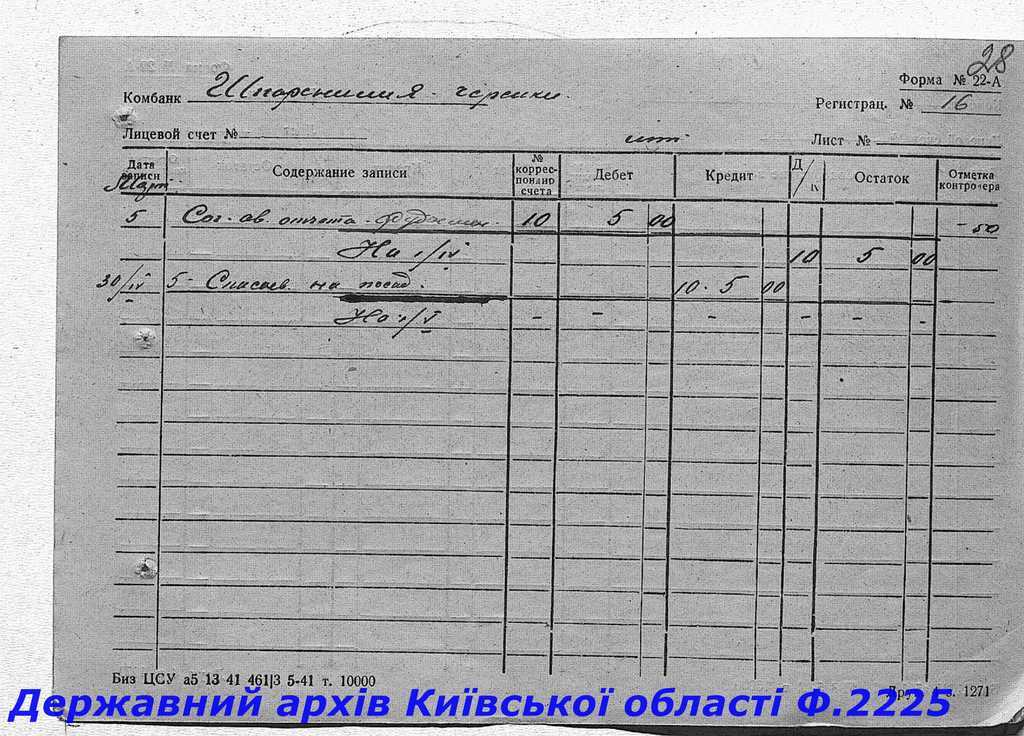 28
Форма № 22-А
Комбанк
Регистрац. № 16
Лицевой счет №
шт.
Лист №
Дата записи
Содержание записи
№ коррес-пондир счета
Дебет
Кредит
Д/К
Остаток
Отметка контролера
Март
5 Сог. ав. отчета 10 5 00 -50
На 1/IV 10 5 00
30/IV 5- на посад. 10. 5 00
На 1/V - - - - - -
Биз ЦСУ а5 13 41 461|3 5-41 т. 10000
1271
Державний архів Київської області Ф.2225